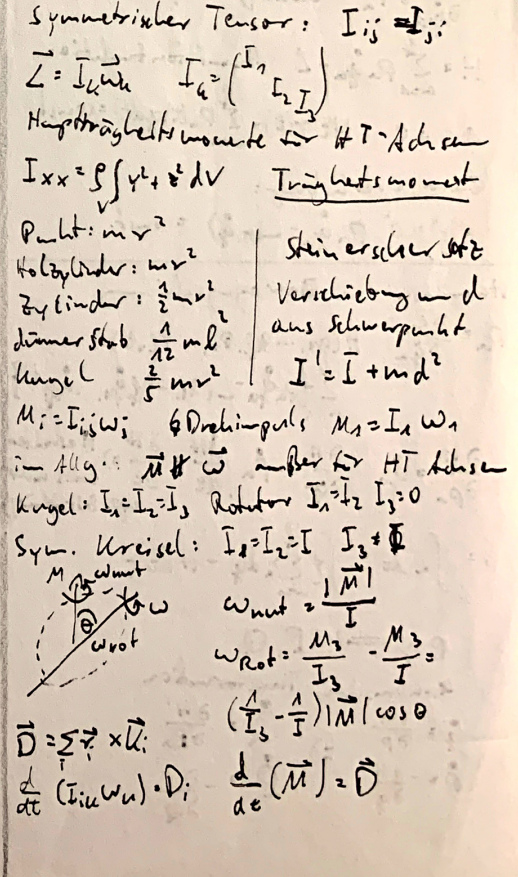 Symmetrischer Tensor: I_ij = I_ji
L⃗ = I_k ω⃗_k   I_k = (I_1 I_2 I_3)
Hauptträgheitsmomente für HT-Achsen
I_xx = ρ∫_V y² + z² dV   Trägheitsmoment
Punkt: mr²
Holzylinder: mr²
Zylinder: 1/2 mr²
dünner Stab 1/12 ml²
Kugel 2/5 mr²
Steinerscher Satz
Verschiebung um d
aus Schwerpunkt
I' = I + md²
M_i = I_ij ω_j   Drehimpuls M_1 = I_1 ω_1
im Allg. M⃗ ∦ ω⃗ außer für HT Achsen
Kugel: I_1 = I_2 = I_3   Rotator I_1 = I_2 I_3 = 0
Sym. Kreisel: I_1 = I_2 = I   I_3 ≠ I
M ω_nut
ω
θ
ω_rot
ω_nut = |M⃗| / I
ω_Rot = M_3/I_3 - M_3/I =
(1/I_3 - 1/I) |M⃗| cos θ
D⃗ = Σ_i r⃗_i × K⃗_i :
d/dt (I_ik ω_k) = D_i   d/dt (M⃗) = D⃗